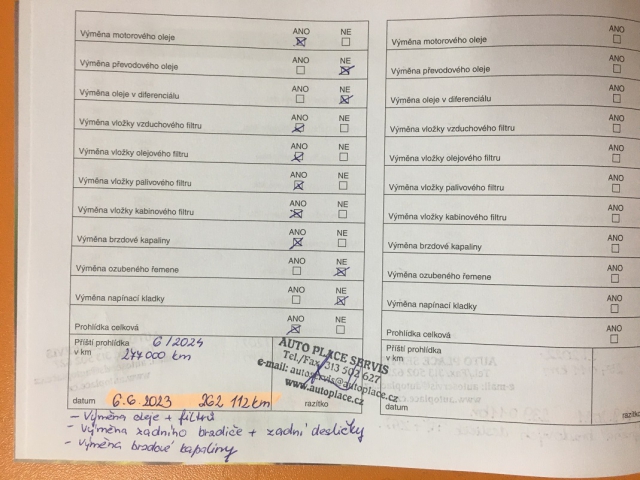 ANO NE
Výměna motorového oleje
ANO NE
Výměna převodového oleje
ANO NE
Výměna oleje v diferenciálu
ANO NE
Výměna vložky vzduchového filtru
ANO NE
Výměna vložky olejového filtru
ANO NE
Výměna vložky palivového filtru
ANO NE
Výměna vložky kabinového filtru
ANO NE
Výměna brzdové kapaliny
ANO NE
Výměna ozubeného řemene
ANO NE
Výměna napínací kladky
ANO NE
Prohlídka celková
Příští prohlídka 6/2024
v km 277 000 km
AUTO PLACE SERVIS
Tel./Fax: 313 502 627
e-mail: autoservis@autoplace.cz
www.autoplace.cz
datum 6.6.2023 262 112 km razítko
- Výměna oleje + filtrů
- Výměna zadního brzdiče + zadní destičky
- Výměna brzdové kapaliny
ANO
Výměna motorového oleje
ANO
Výměna převodového oleje
ANO
Výměna oleje v diferenciálu
ANO
Výměna vložky vzduchového filtru
ANO
Výměna vložky olejového filtru
ANO
Výměna vložky palivového filtru
ANO
Výměna vložky kabinového filtru
ANO
Výměna brzdové kapaliny
ANO
Výměna ozubeného řemene
ANO
Výměna napínací kladky
ANO
Prohlídka celková
Příští prohlídka
v km
datum